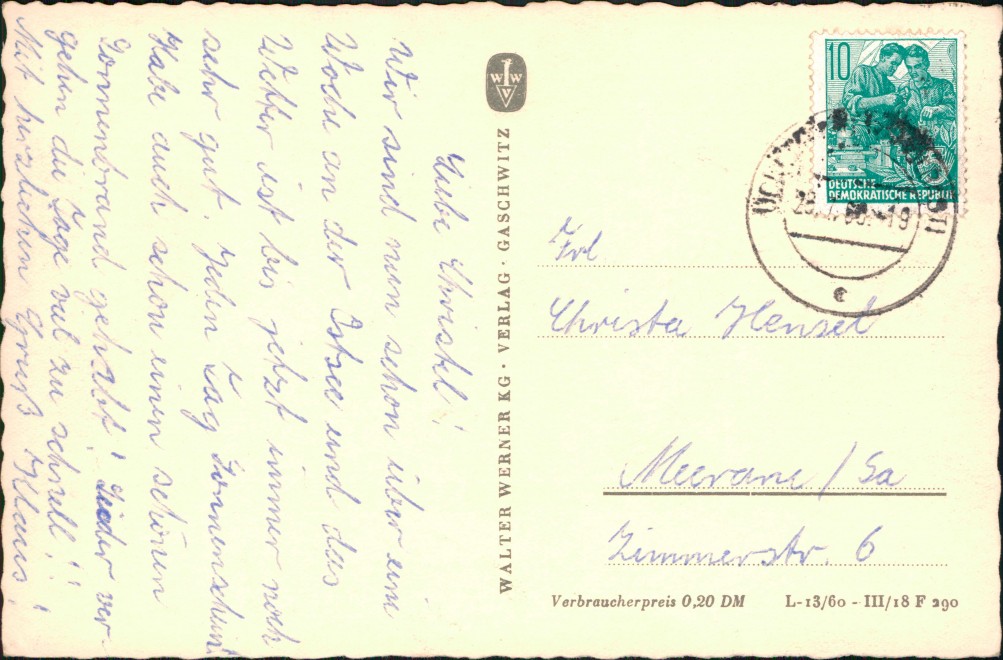 Liebe Christl!
Wir sind nun schon über eine
Woche an der Ostsee und das
Wetter ist bis jetzt immer noch
sehr gut. Jeden Tag Sonnenschein!
Habe auch schon einen schönen
Sonnenbrand gehabt! Leider ver-
gehen die Tage viel zu schnell!!
Mit herzlichen Gruß Klaus!
W W V
WALTER WERNER KG · VERLAG · GASCHWITZ
10
DEUTSCHE
DEMOKRATISCHE REPUBLIK
-19
e
Frl
Christa Hensel
Meerane / Sa
Zimmerstr. 6
Verbraucherpreis 0,20 DM L-13/60 - III/18 F 290